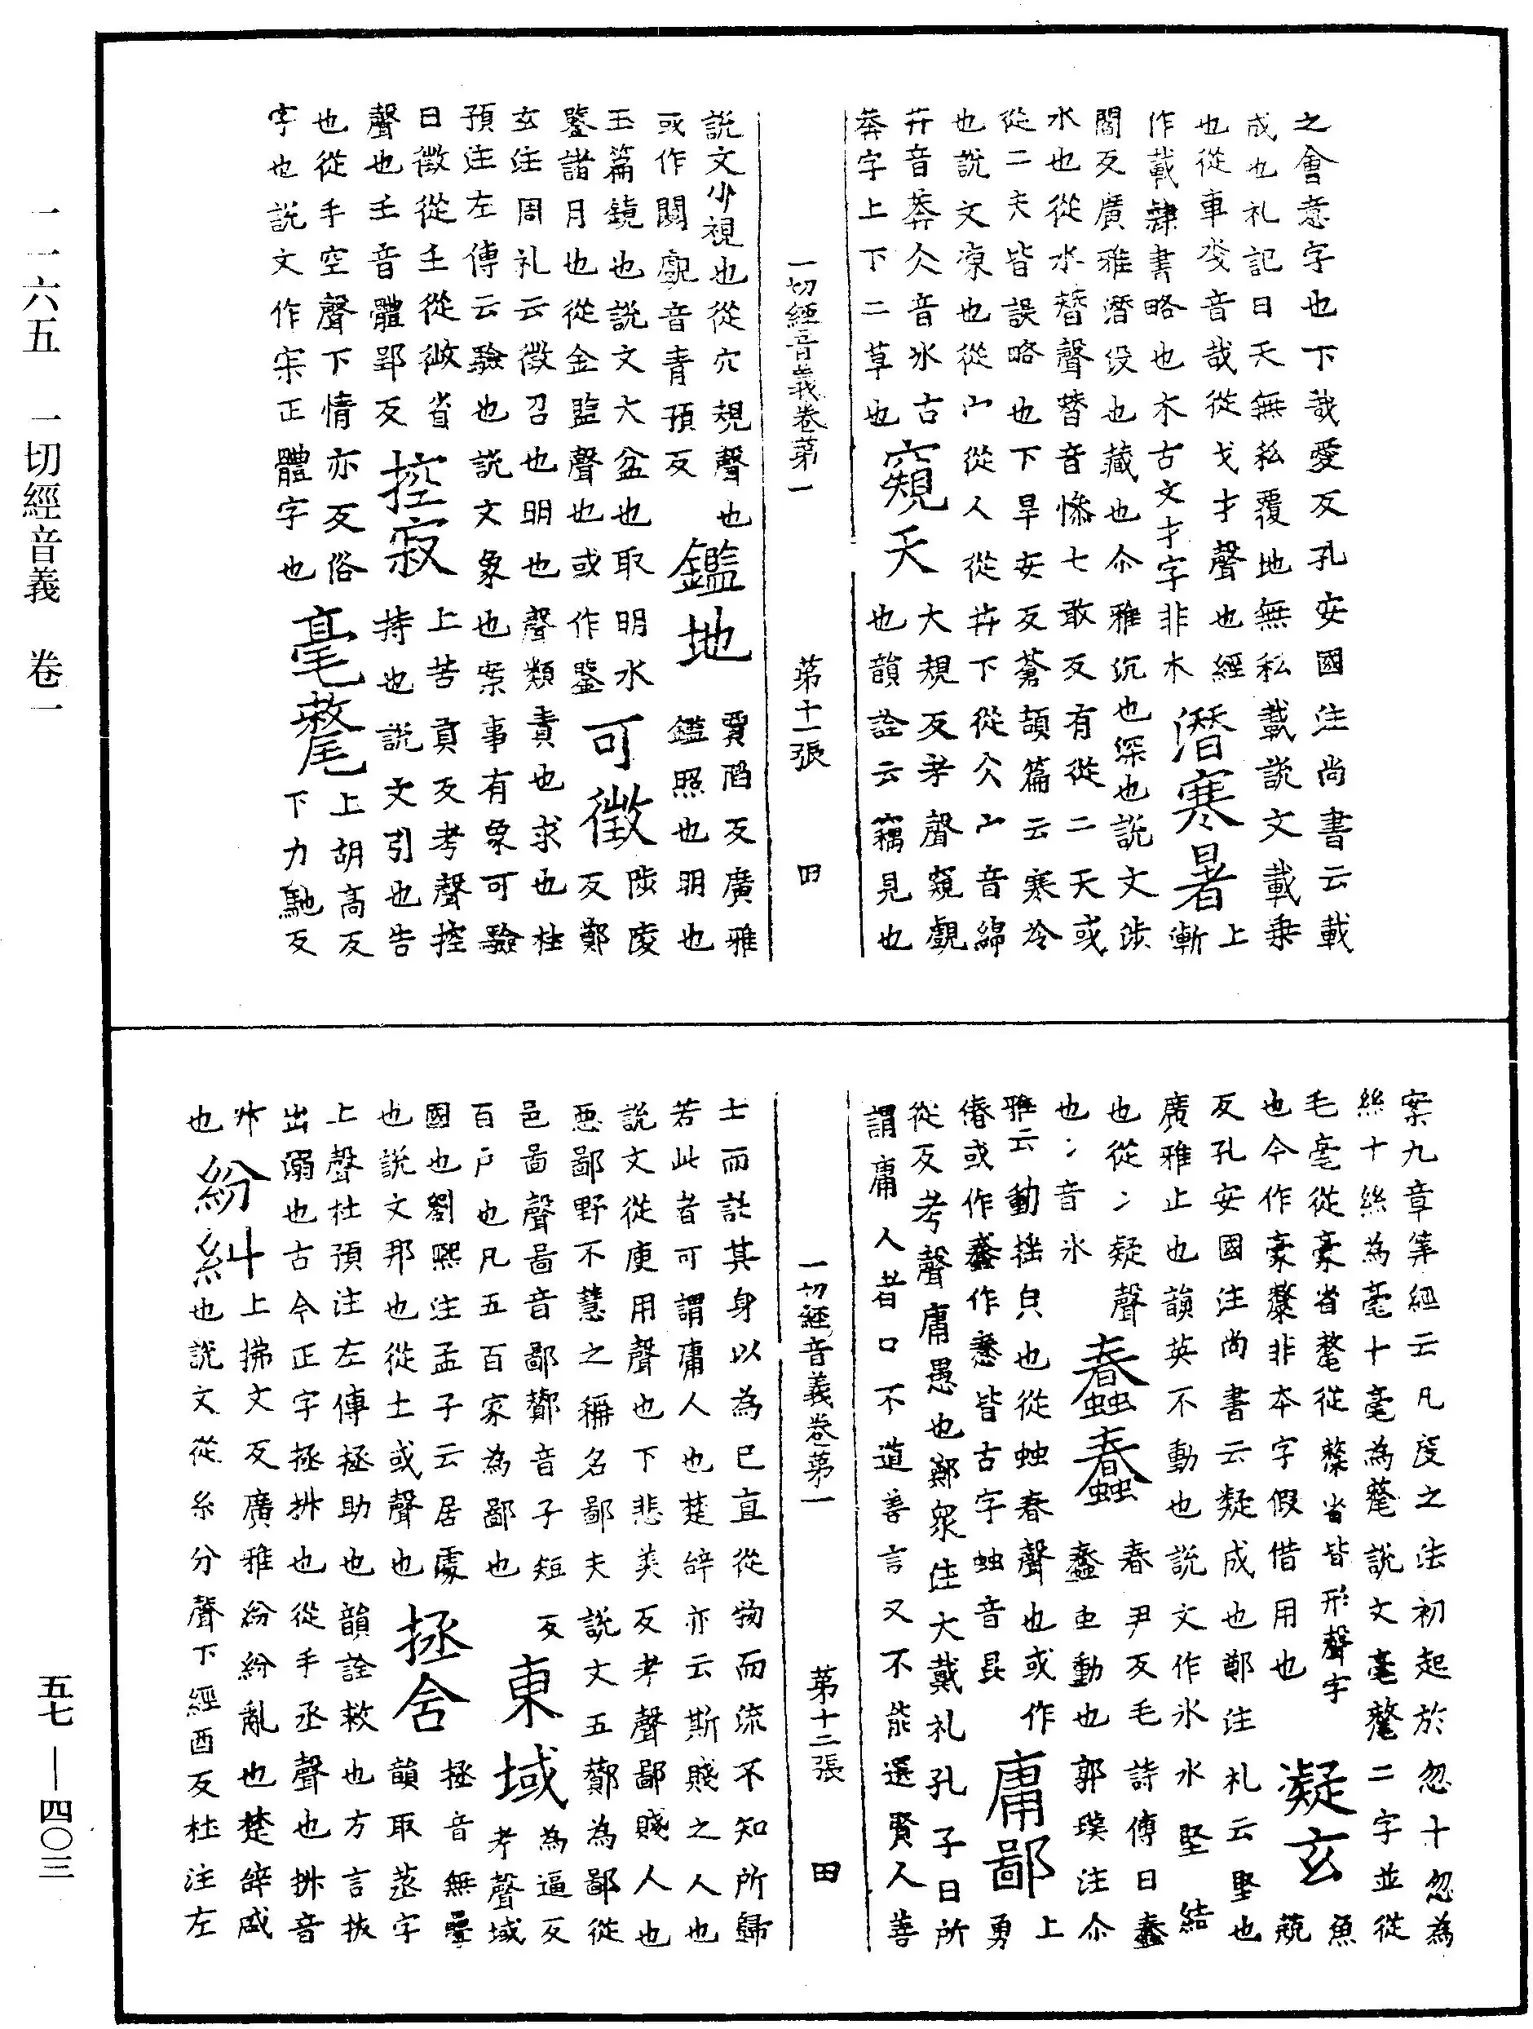 之會意字也下哉愛反孔安國注尚書云載
成也礼記曰天無私覆地無私載説文載乗
也從車𢦏音哉從戈才聲也經
作載隸書略也木古文才字非木
潛寒暑
上漸
閻反廣雅潛没也藏也尒雅沉也深也説文涉
水也從水朁聲朁音慘七敢反有從二天或
從二夫皆誤略也下旱安反蒼頡篇云寒冷
也説文凍也從宀從人從茻下從仌宀音綿
茻音莽仌音氷古
莽字上下二草也
窺天
犬規反考聲窺覰
也韻詮云竊見也
一切經音義卷第一 第十一張 田
説文少視也從穴規聲也
或作闚覰音青預反
鑑地
賈陷反廣雅
鑑照也明也
玉篇鏡也説文大盆也取明水
鑒諸月也從金監聲也或作鑒
可徵
陟陵
反鄭
玄注周礼云徵召也明也聲類責也求也杜
預注左傳云驗也説文象也案事有象可驗
曰徵從壬從微省
聲也壬音體郢反
控寂
上苦貢反考聲控
持也説文引也告
也從手空聲下情亦反俗
字也説文作宋正體字也
毫氂
上胡高反
下力馳反
案九章筭經云凡度之法初起於忽十忽為
絲十絲為毫十毫為氂説文毫氂二字並從
毛毫從豪省氂從𠩺省皆形聲字
也今作豪釐非本字假借用也
凝玄
魚
兢
反孔安國注尚書云凝成也鄭注礼云堅也
廣雅止也韻英不動也説文作氷水堅結
也從冫疑聲
也冫音氷
蠢蠢
春尹反毛詩傳曰蠢
蠢虫動也郭璞注尒
雅云動揺皃也從䖵春聲也或作
偆或作𧑐作惷皆古字䖵音昆
庸鄙
上勇
從反考聲庸愚也鄭衆注大戴礼孔子曰所
謂庸人者口不道善言又不能選賢人善
一切經音義卷第一 第十二張 田
士而託其身以為已直從物而流不知所歸
若此者可謂庸人也楚辞亦云斯賤之人也
説文從庚用聲也下悲美反考聲鄙賤人也
惡鄙野不慧之稱名鄙夫説文五酇為鄙從
邑啚聲啚音鄙酇音子短反
百戶也凡五百家為鄙也
東域
為逼反
考聲域
國也劉熙注孟子云居處
也説文邦也從土或聲也
拯含
拯音無疊
韻取蒸字
上聲杜預注左傳拯助也韻詮救也方言拔
出溺也古今正字拯抍也從手丞聲也抍音
升也
紛糾
上拂文反廣雅紛紛亂也楚辞盛
也説文從糸分聲下經酉反杜注左
一一六五 一切經音義 卷一
五七—四〇三